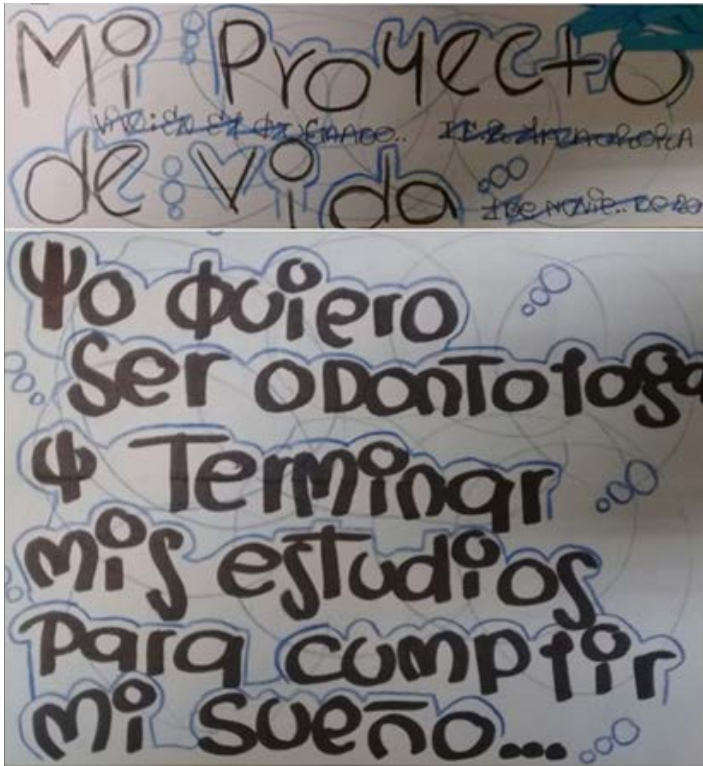 Mi Proyecto
de vida
Yo Quiero
ser odontologa
y Terminar
mis estudios
para cumplir
mi sueño...